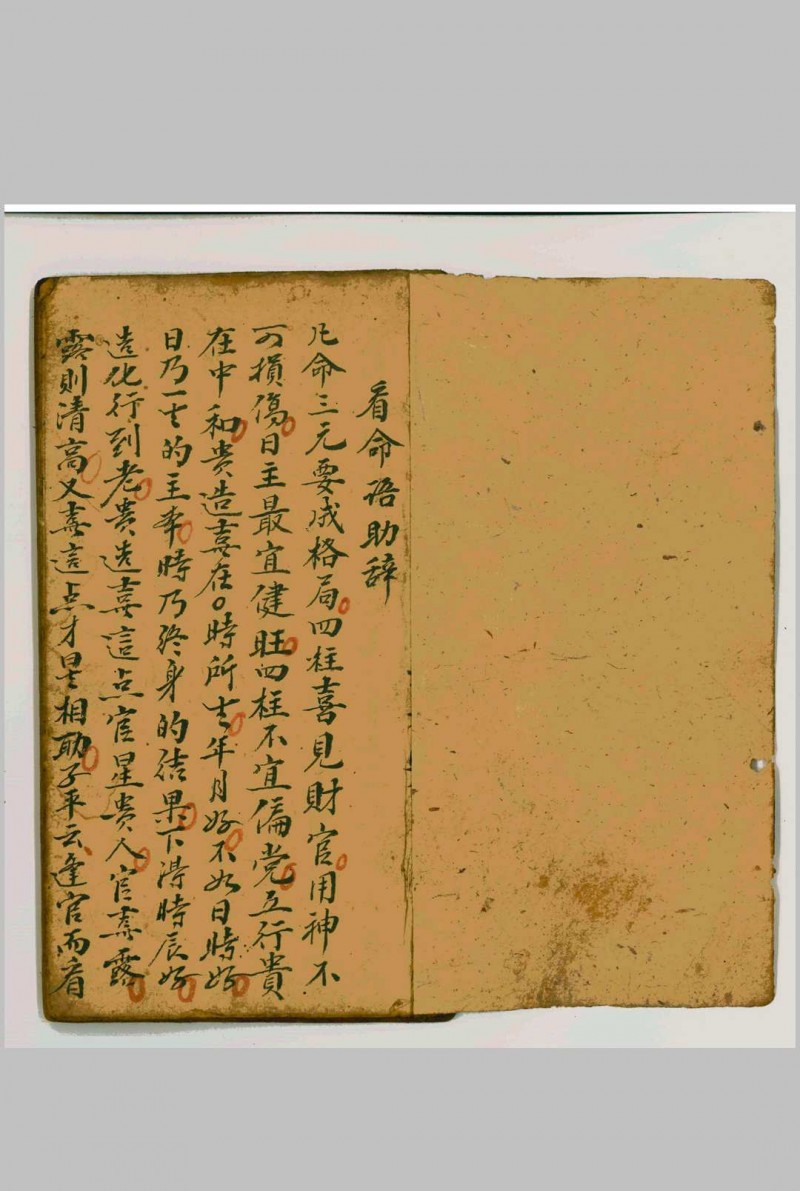 看命语助辞
凡命三元要成格局四柱喜見財官用神不
可損傷日主最宜健旺四柱不宜偏党五行貴
在中和貴造喜在〇時所生年月好不如日時好
日乃一生的主宰時乃終身的结果下得時辰好
造化行到老貴造喜這点官星貴人官喜露
露則清高又喜這点才星相助子平云逢官而看